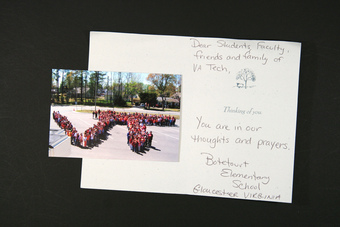 Dear Students, Faculty,
friends and family of
VA Tech,
Thinking of you
You are in our
thoughts and prayers.
Botetourt
Elementary
School
Gloucester VIRGINIA